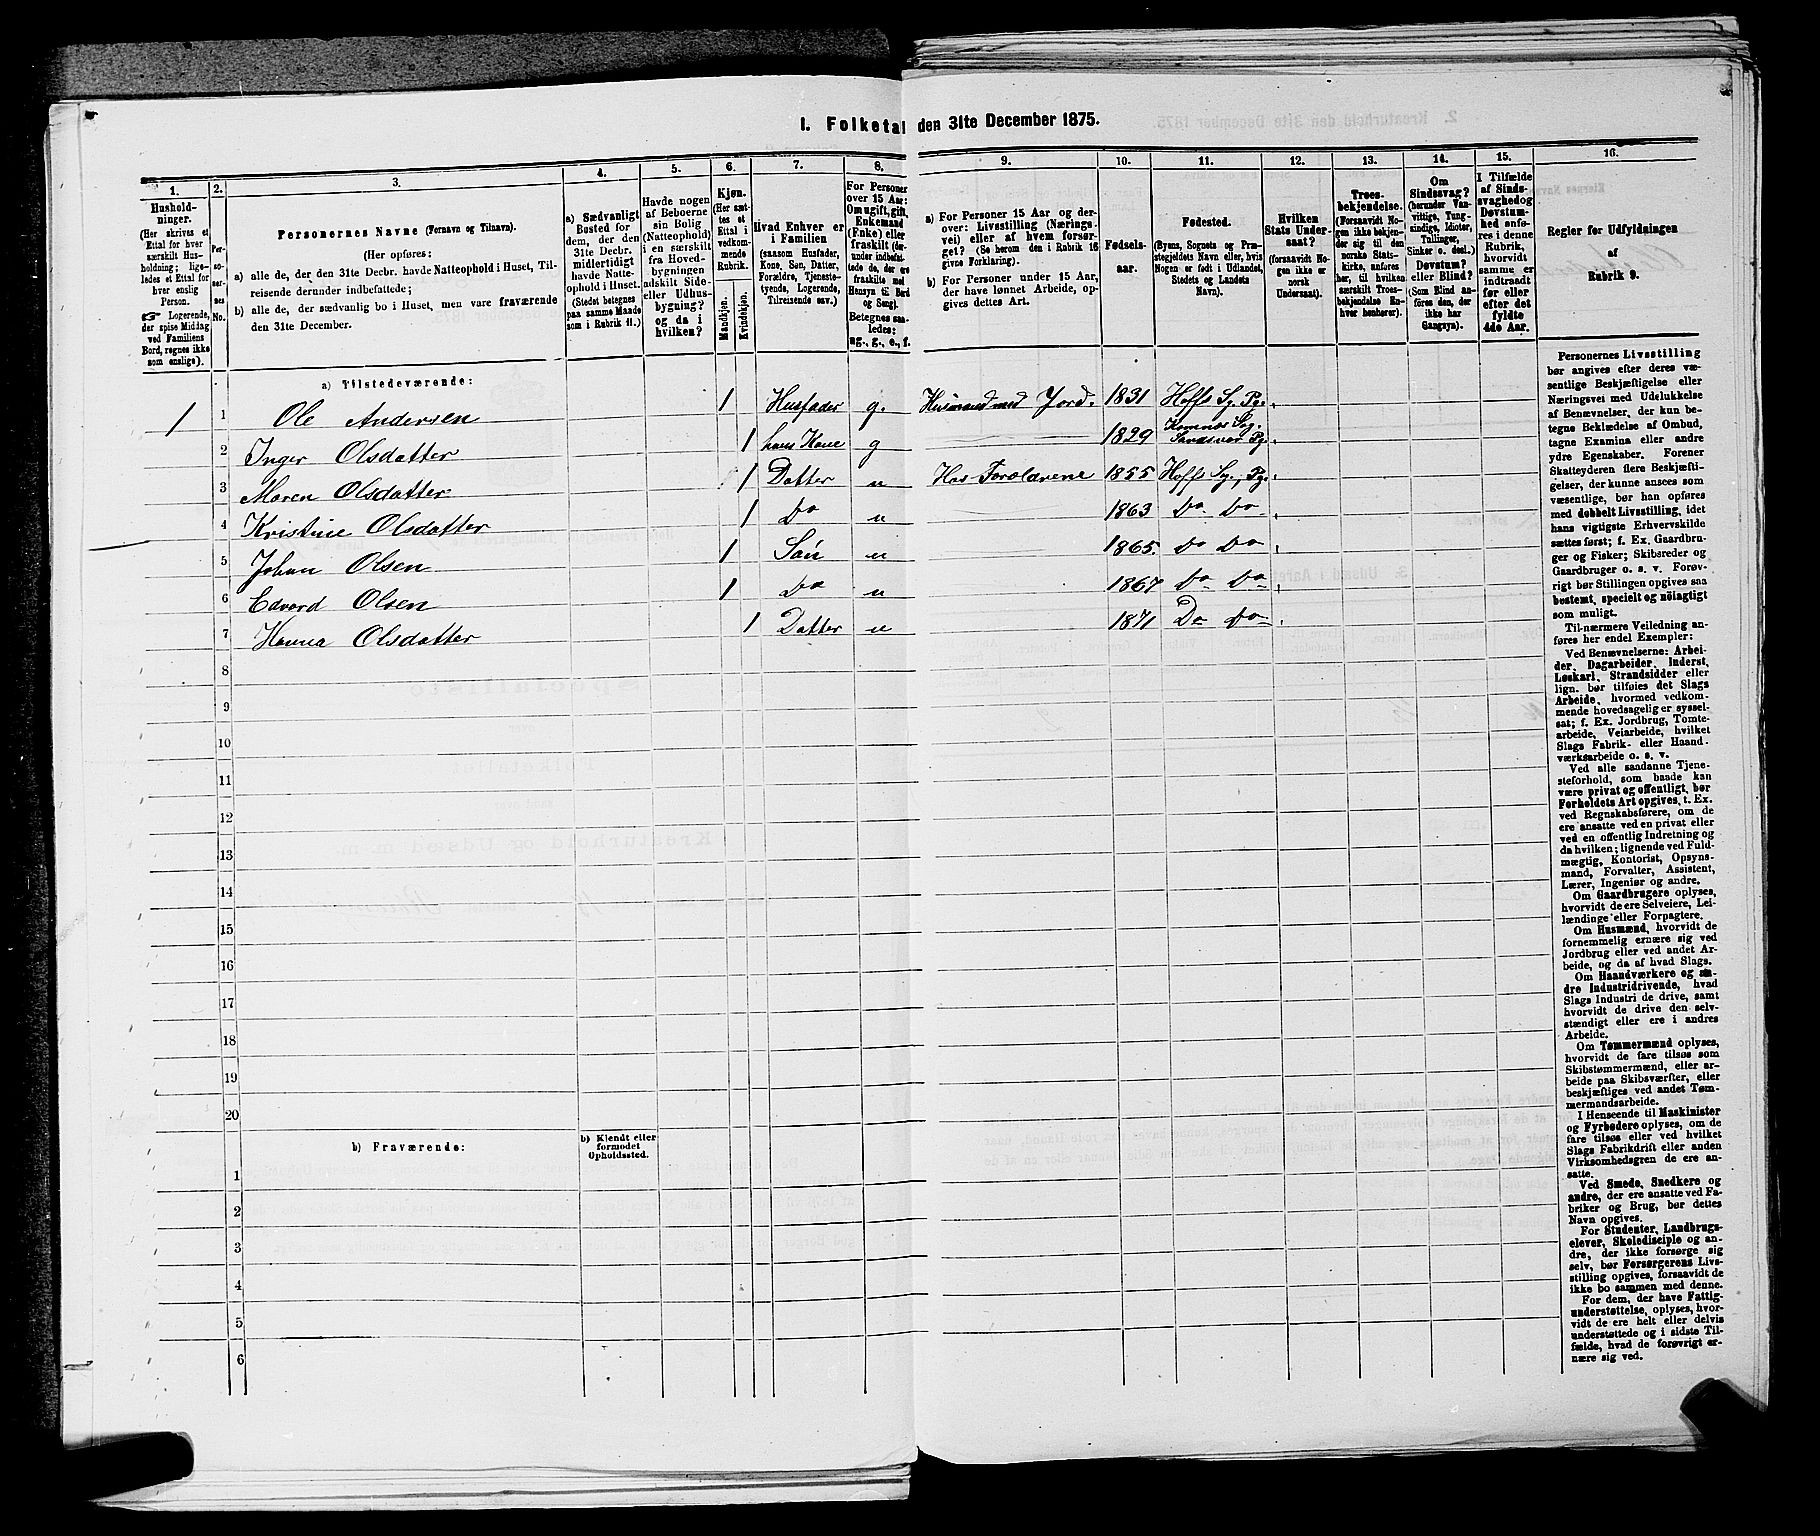 I. Folketal den 31te December 1875.
1.
2.
3.
4.
5.
6.
7.
8.
9.
10.
11.
12.
13.
14.
15.
16.
Hushold-
ninger.
(Her skrives et
Ettal for hver
særskilt Hus-
holdning; lige-
ledes et Ettal for
hver enslig
Person.
☞ Logerende,
der spise Middag
ved Familiens
Bord, regnes ikke
som enslige).
Per-
so-
ner-
nes
No.
Personernes Navne (Fornavn og Tilnavn).
(Her opføres:
a) alle de, der den 31te Decbr. havde Natteophold i Huset, Til-
reisende derunder indbefattede;
b) alle de, der sædvanlig bo i Huset, men vare fraværende
den 31te December.
a) Sædvanligt
Bosted for
dem, der den
31te Decbr.
midlertidigt
havde Natte-
ophold i Huset.
(Stedet betegnes
paa samme Maade
som i Rubrik 11.)
Havde nogen
af Beboerne
sin Bolig
(Natteophold)
i en særskilt
fra Hoved-
bygningen
adskilt Side-
eller Udhus-
bygning?
og da i
hvilken?
Kjøn.
(Her sæt-
tes et
Ettal i
vedkom-
mende
Rubrik.
Mandkjøn.
Kvindekjøn.
Hvad Enhver er
i Familien
(saasom Husfader,
Kone, Søn, Datter,
Forældre, Tjeneste-
tyende, Logerende,
Tilreisende osv.)
For Personer
over 15 Aar:
Om ugift, gift,
Enkemand
(Enke) eller
fraskilt (der-
under indbefat-
tede de, der ere
fraskilte med
Hensyn til Bord
og Seng).
Betegnes saa-
ledes:
ug., g., e., f.
a) For Personer 15 Aar og der-
over: Livsstilling (Nærings-
vei) eller af hvem forsør-
get? (Se herom den i Rubrik 16
givne Forklaring).
b) For Personer under 15 Aar,
der have lønnet Arbeide, op-
gives dettes Art.
Fødsels-
aar.
Fødested.
(Byens, Sognets og Præ-
stegjeldets Navn eller, hvis
Nogen er født i Udlandet,
Stedets og Landets
Navn).
Hvilken
Stats Under-
saat?
(forsaavidt No-
gen ikke er
norsk
Undersaat).
Troes-
bekjendelse.
(Forsaavidt No-
gen ikke bekjen-
der sig til den
norske Stats-
kirke, anføres
her, til hvilken
særskilt Troes-
bekjendelse En-
hver henhører).
Om
Sindssvag?
(herunder Van-
vittige, Tung-
sindige, Idioter,
Tullinger,
Sinker o. desl.)
Døvstum?
eller Blind?
(Som Blind an-
føres den, der
ikke har
Gangsyn).
I Tilfælde
af Sinds-
svaghed og
Døvstum-
hed anfø-
res i denne
Rubrik,
hvorvidt
samme er
indtraadt
før eller
efter det
fyldte
4de Aar.
Regler for Udfyldningen
af
Rubrik 9.
a) Tilstedeværende:
1 1 Ole Andersen 1 Husfader g. Husmand med Jord. 1831 Hoffs Sg. Pg.
2 Inger Olsdatter 1 hans Kone g 1829 Komnes Sg. Sandsvær Pg.
3 Maren Olsdatter 1 Datter u Hos Forældrene 1855 Hoffs Sg., Pg.
4 Kristine Olsdatter 1 Do u 1863 Do Do
5 Johan Olsen 1 Søn u 1865. Do Do
6 Edvard Olsen 1 Do u 1867 Do Do
7 Hanna Olsdatter 1 Datter u 1871 Do Do
8
9
10
11
12
13
14
15
16
17
18
19
20
b) Fraværende:
b) Kjendt eller
formodet
Opholdssted.
1
2
3
4
5
6
Personernes Livsstilling
bør angives efter deres væ-
sentlige Beskjæftigelse eller
Næringsvei med Udelukkelse
af Benævnelser, der kun be-
tegne Beklædelse af Ombud,
tagne Examina eller andre
ydre Egenskaber. Forener
Skatteyderen flere Beskjæfti-
gelser, der kunne ansees som
væsentlige, bør han opføres
med dobbelt Livsstilling, idet
hans vigtigste Erhvervskilde
sættes først; f. Ex. Gaardbru-
ger og Fisker; Skibsreder og
Gaardbruger o. s. v. Forøv-
rigt bør Stillingen opgives saa
bestemt, specielt og nöiagtigt
som muligt.
Til nærmere Veiledning an-
føres her endel Exempler:
Ved Benævnelserne: Arbei-
der, Dagarbeider, Inderst,
Løskarl, Strandsidder eller
lign. bør tilføies det Slags
Arbeide, hvormed vedkom-
mende hovedsagelig er syssel-
sat; f. Ex. Jordbrug, Tomte-
arbeide, Veiarbeide, hvilket
Slags Fabrik- eller Haand-
værksarbeide o. s. v.
Ved alle saadanne Tjene-
steforhold, som baade kan
være privat og offentligt, bør
Forholdets Art opgives, t. Ex.
ved Regnskabsførere, om de
ere ansatte ved en privat eller
ved en offentlig Indretning og
da hvilken; lignende ved Fuld-
mægtig, Kontorist, Opsyns-
mand, Forvalter, Assistent,
Lærer, Ingeniør og andre.
Om Gaardbrugere oplyses,
hvorvidt de ere Selveiere, Lei-
lændinge eller Forpagtere.
Om Husmænd, hvorvidt de
fornemmelig ernære sig ved
Jordbrug eller ved andet Ar-
beide, og da af hvad Slags.
Om Haandværkere og an-
dre Industridrivende, hvad
Slags Industri de drive, samt
hvorvidt de drive den selv-
stændigt eller ere i andres
Arbeide.
Om Tømmermænd oplyses,
hvorvidt de fare tilsøs som
Skibstømmermænd, eller ar-
beide paa Skibsværfter, eller
beskjæftiges ved andet Tøm-
mermandsarbeide.
I Henseende til Maskinister
og Fyrbødere oplyses, om de
fare tilsøs eller ved hvilket
Slags Fabrikdrift eller anden
Virksomhedsgren de ere an-
satte.
Ved Smede, Snedkere og
andre, der ere ansatte ved Fa-
briker og Brug, bør dettes
Navn opgives.
For Studenter, Landbrugs-
elever, Skoledisciple og an-
dre, der ikke forsørge sig
selv, bør Forsørgerens Livs-
stilling opgives, forsaavidt de
ikke bo sammen med denne.
For dem, der have Fattig-
understøttelse, oplyses, hvor-
vidt de ere helt eller delvis
understøttede og i sidste Til-
fælde, hvad de forøvrigt er-
nære sig ved.